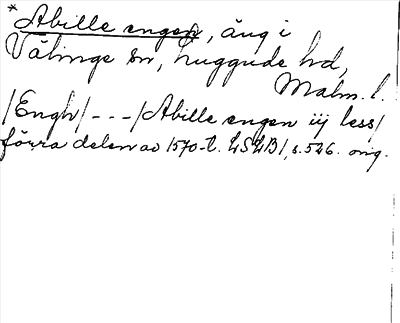 * Abille engen, äng i
Välinge sn, Luggude hd,
Malm. l.
/Engh/ - - - /Abille engen iij less/
förra delen av 1570-t. LSLB1, s. 526. orig.